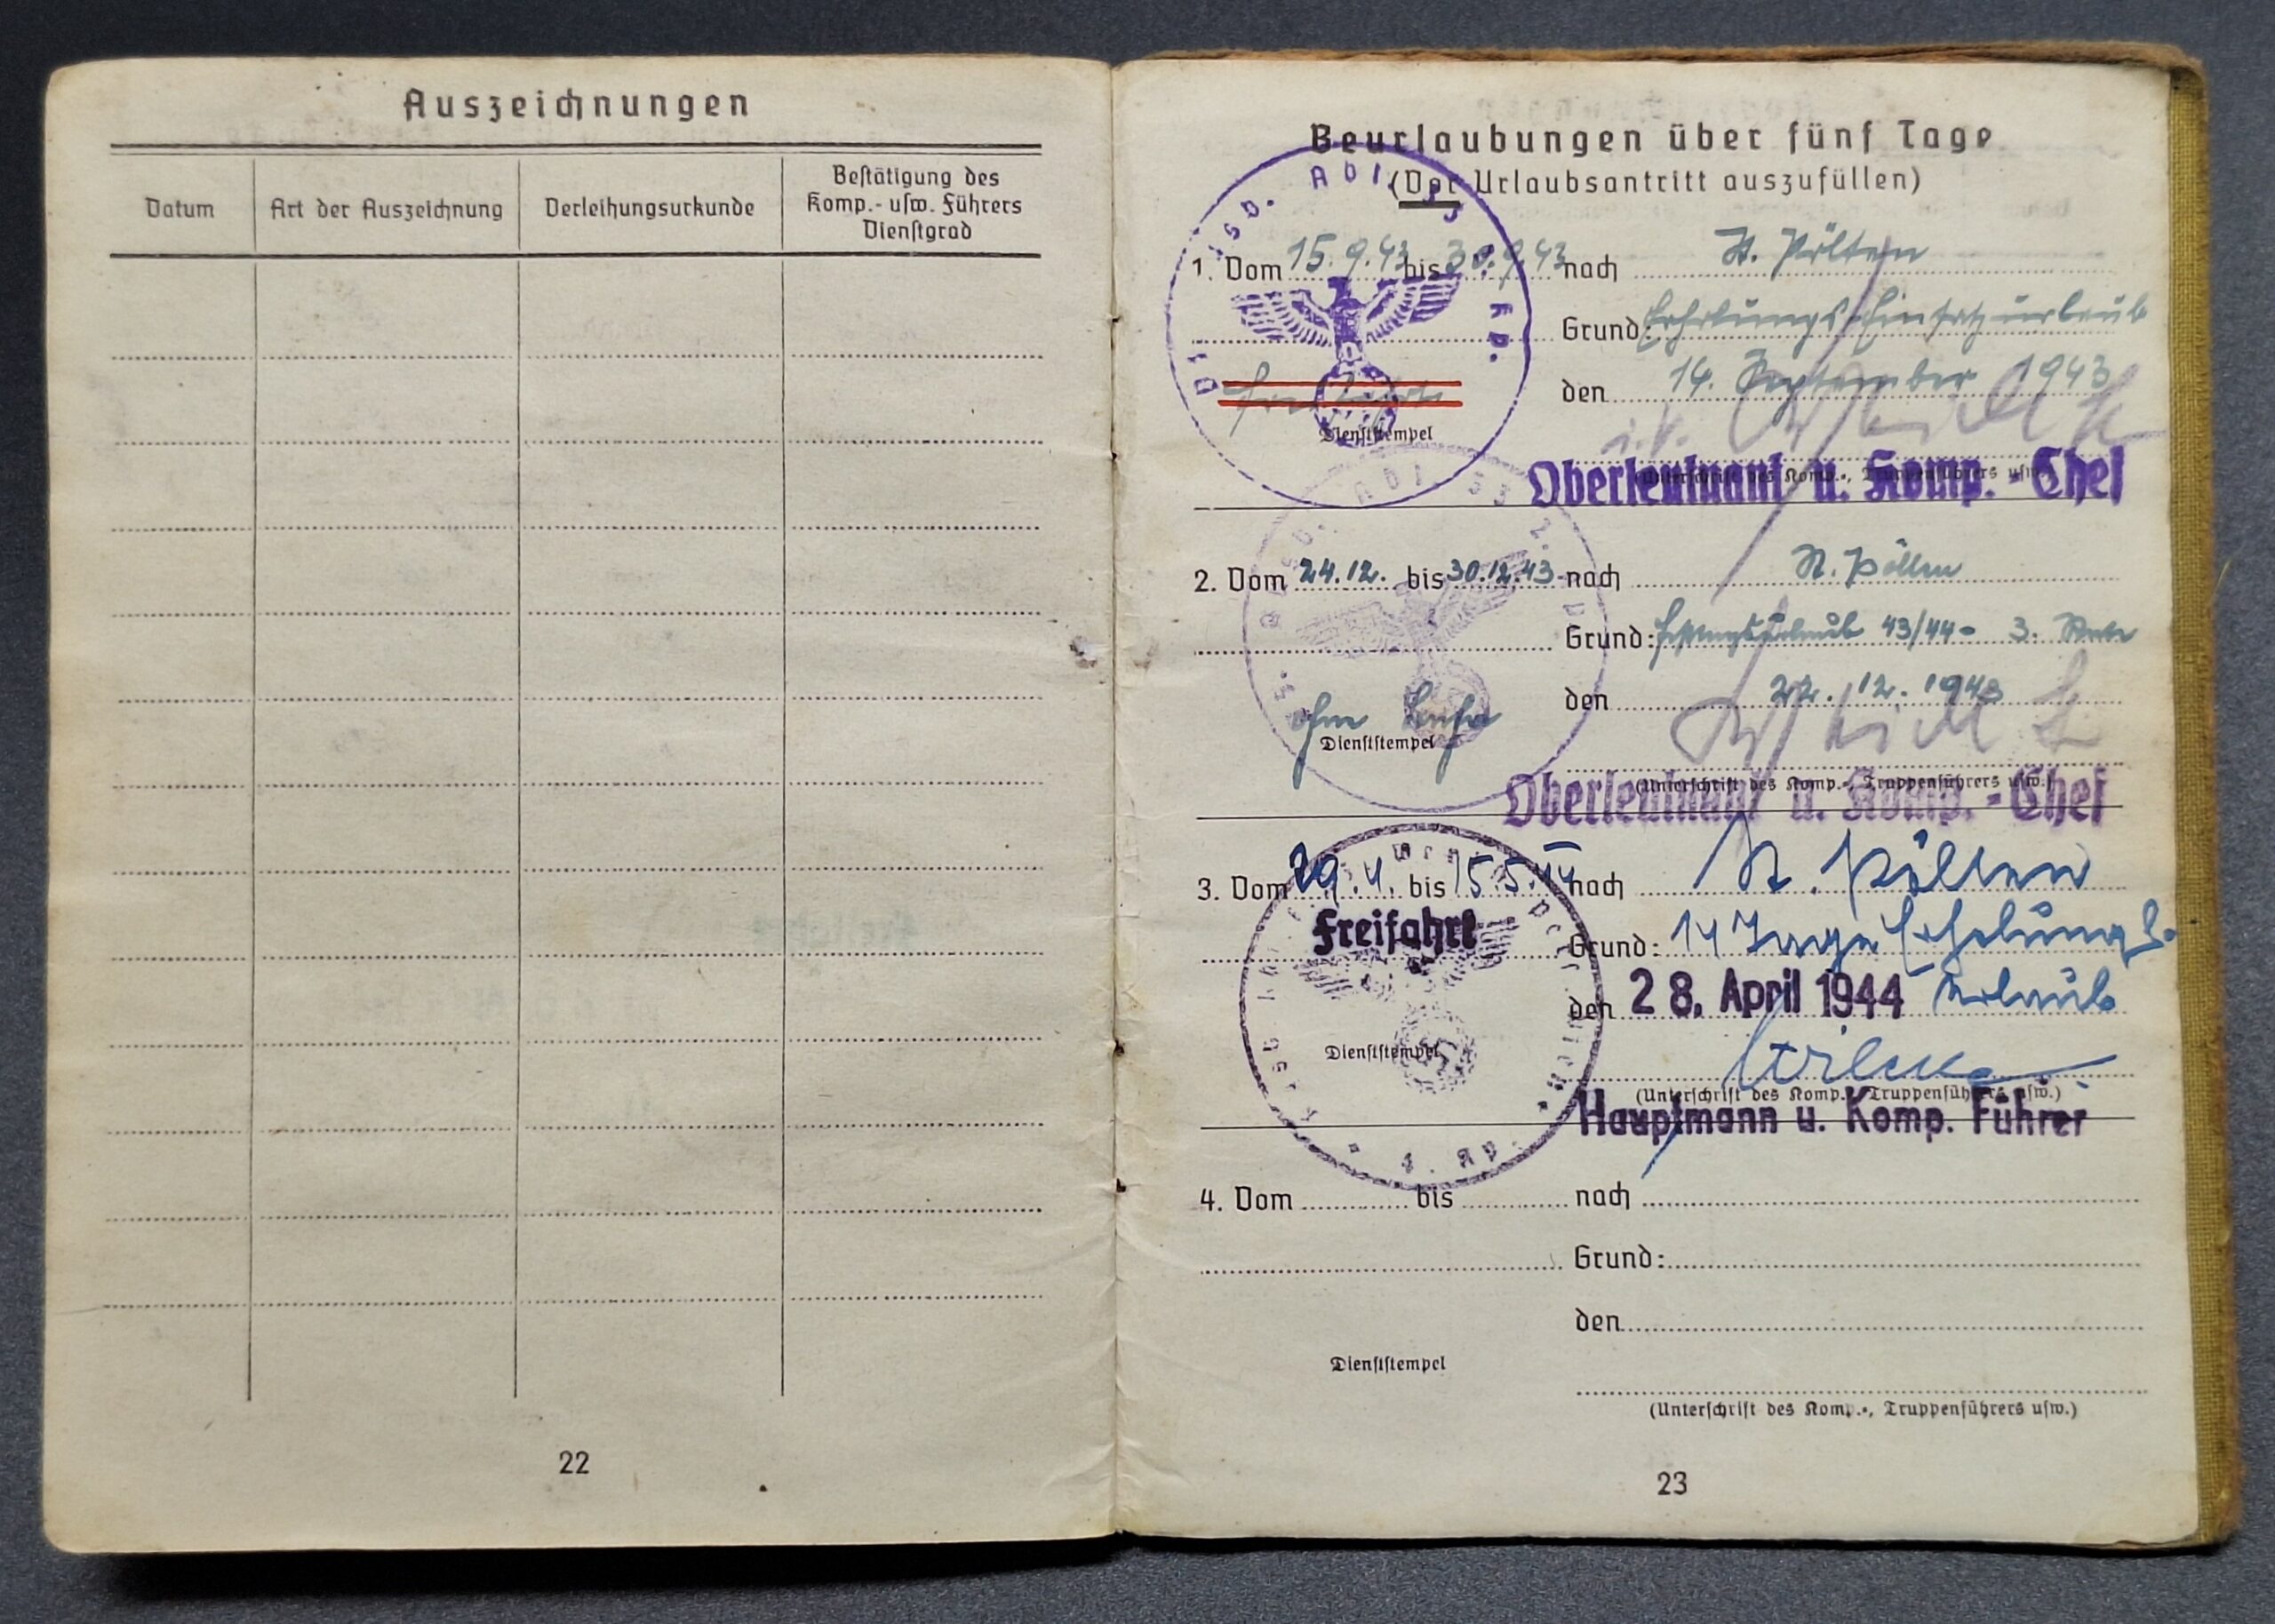 Auszeichnungen
Datum
Art der Auszeichnung
Verleihungsurkunde
Bestätigung des
Komp.- usw. Führers
Dienstgrad
22
Beurlaubungen über fünf Tage
(Vor Urlaubsantritt auszufüllen)
1. Vom 15.9.43 bis 30.9.43 nach St. Pölten
Grund:
den 14. September 1943
i.V.
Dienststempel
(Unterschrift des Komp.-, Truppenführers usw.)
Oberleutnant u. Komp.-Chef
2. Vom 24.12. bis 30.12.43 nach St. Pölten
Grund: 43/44 - 3. Rate
den 22.12.1943
Dienststempel
(Unterschrift des Komp.-, Truppenführers usw.)
Oberleutnant u. Komp.-Chef
3. Vom 29.4. bis 15.5.44 nach St. Pölten
Freifahrt
Grund: 14 Tage Erholungs-
den 28. April 1944 Urlaub
Dienststempel
(Unterschrift des Komp.-, Truppenführers usw.)
Hauptmann u. Komp. Führer
4. Vom bis nach
Grund:
den
Dienststempel
(Unterschrift des Komp.-, Truppenführers usw.)
23